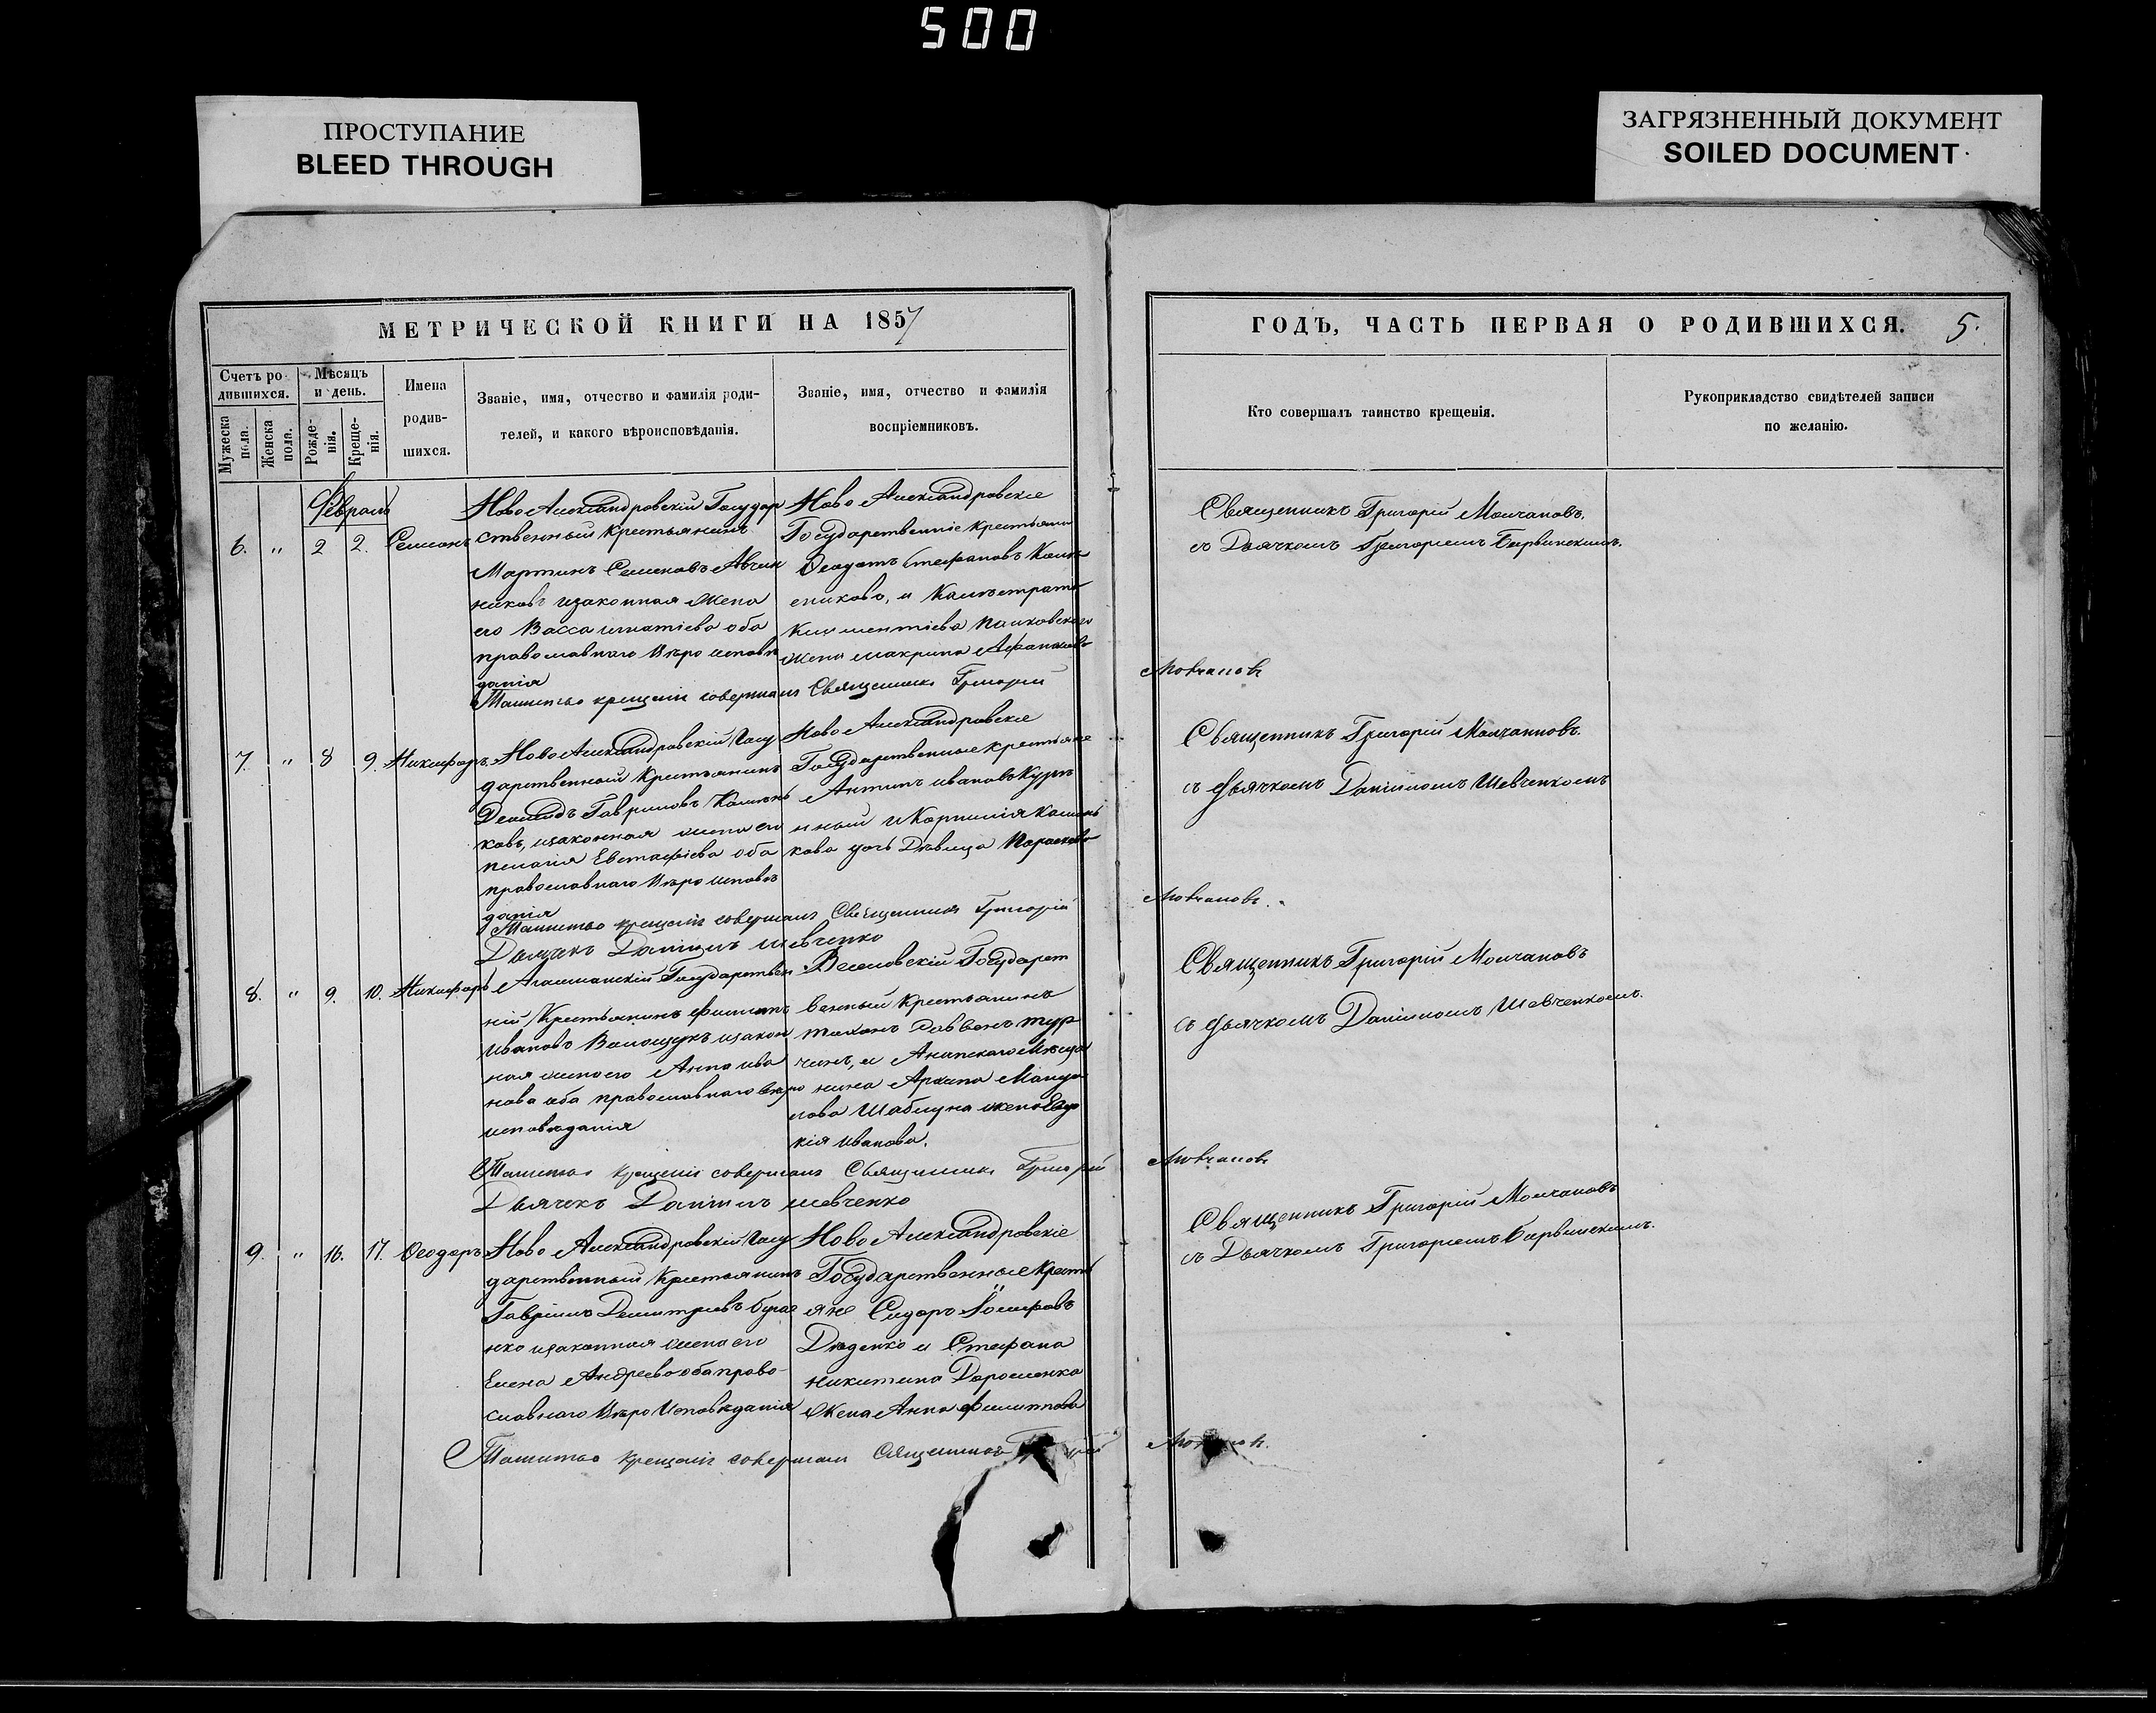 500
ПРОСТУПАНИЕ
BLEED THROUGH
ЗАГРЯЗНЕННЫЙ ДОКУМЕНТ
SOILED DOCUMENT
МЕТРИЧЕСКОЙ КНИГИ НА 1857
ГОДЪ, ЧАСТЬ ПЕРВАЯ О РОДИВШИХСЯ. 5.
Счетъ ро-
дившихся.
Мужеска
пола.
Женска
пола.
Мѣсяцъ
и день.
Рожде-
нія.
Креще-
нія.
Имена
родив-
шихся.
Званіе, имя, отчество и фамилія роди-
телей, и какого вѣроисповѣданія.
Званіе, имя, отчество и фамилія
воспріемниковъ.
Кто совершалъ таинство крещенія.
Рукоприкладство свидѣтелей записи
по желанію.
Февраль
6. " 2 2. Симеонъ
Ново Александровскій Государ
ственный Крестьянинъ
Мартинъ Семеновъ
никовъ изаконная жена
его Васса игнатіева оба
православнаго Вѣро исповѣ
данія
Ново Александровскіе
Государственніе крестьяни
Ѳеодотъ Стефановъ
и
жена макрина
Священникъ Григорій Молчановъ.
съ Дьячкомъ Григоріемъ Барвинскимъ.
Таинство крещенія совершалъ Священникъ Григорій Мовчановъ
7. " 8 9. Никифоръ
Ново Александровскій Госу
дарственный Крестьянинъ
Демидъ Гавриловъ Калини
ковъ, изаконная жена его
пелагія Евстафіева оба
православнаго Вѣро исповѣ
данія
Ново Александровскіе
Государственные крестьяне
Антипъ ивановъ
кова дочь Дѣвица
Священникъ Григорій Молчановъ.
съ Дьячкомъ Даніиломъ Шевченкомъ
Таинство крещенія совершалъ Священникъ Григорій Мовчановъ.
Дьячекъ Даніилъ шевченко
8. " 9. 10. Никифоръ
Государствен
ній Крестьянинъ Филипъ
ивановъ Волощукъ изакон
ная жена его Анна ива
нова оба православнаго вѣро
исповѣданія
Веселовскій Государст
венный Крестьянинъ
чинъ, и Анапскаго Мѣща
нина Архипа
лова Шаблуна жена Евдо
кія иванова.
Священникъ Григорій Молчановъ
съ Дьячкомъ Даніиломъ Шевченкомъ.
Таинство крещенія совершалъ Священникъ Григорій Мовчановъ
Дьячекъ Даніилъ шевченко
9. " 16. 17. Ѳеодоръ
Ново Александровскій Госу
дарственный Крестьянинъ
Гавріилъ Димитріевъ
нко изаконная жена его
Елена Андреева оба право-
славнаго Вѣро Исповѣданія
Ново Александровскіе
Государственные Кресть
яне Сидоръ Іосифовъ
Дяденко и Стефана
никитина Дорошенка
жена Анна Филиппова
Священникъ Григорій Молчановъ
съ Дьячкомъ Григоріемъ Барвинскимъ.
Таинство крещенія совершалъ Священникъ